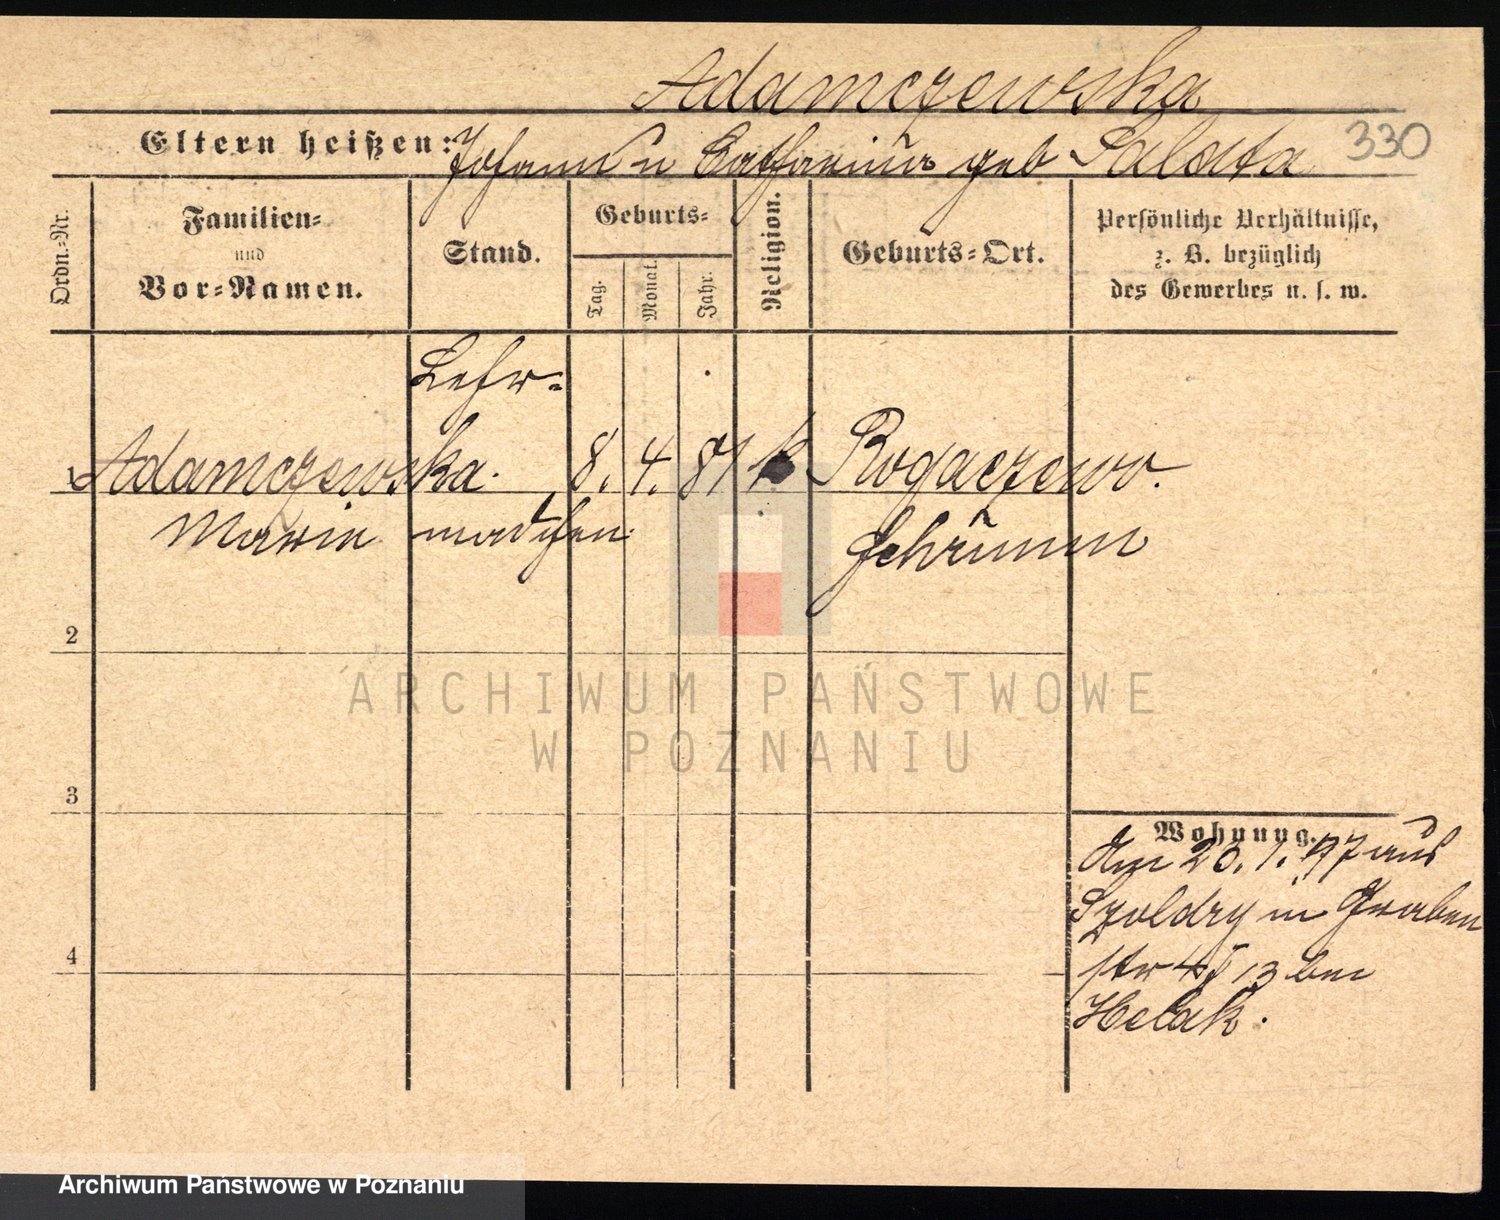 Adamczewska
330
Eltern heißen: Johann u Catharina geb Salata
Ordn.-Nr.
Familien-
und
Vor-Namen.
Stand.
Geburts-
Tag.
Monat.
Jahr.
Religion.
Geburts-Ort.
Persönliche Verhältnisse,
z. B. bezüglich
des Gewerbes u. s. w.
Lehr-
1 Adamczewska. 8. 4. 81 k Rogaczewo.
Marie mädchen Schrimm
2
ARCHIWUM PAŃSTWOWE
W POZNANIU
3
Wohnung.
Am 20. 1. 97 aus
Szoldry in Graben
str 13 bei
Helak.
4
Archiwum Państwowe w Poznaniu